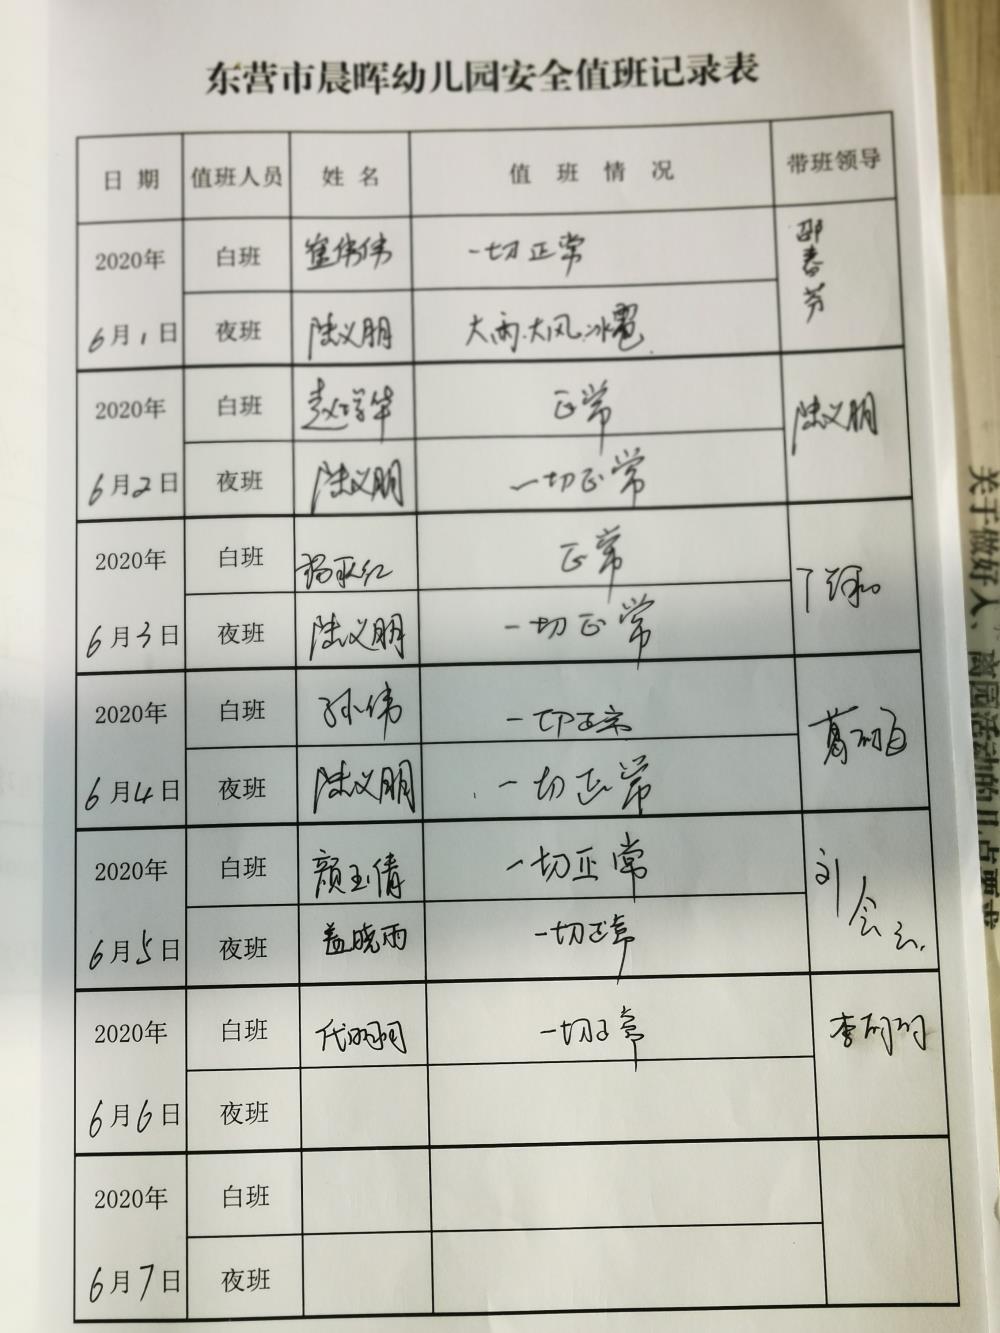 东营市晨晖幼儿园安全值班记录表
日期 值班人员 姓名 值班情况 带班领导
2020年 白班 崔伟伟 一切正常 邵春芳
6月1日 夜班 陆义朋 大雨.大风.冰雹.
2020年 白班 赵学华 正常 陆义朋
6月2日 夜班 陆义朋 一切正常
2020年 白班 杨秋红 正常
6月3日 夜班 陆义朋 一切正常
2020年 白班 孙伟 一切正常
6月4日 夜班 陆义朋 一切正常
2020年 白班 颜玉倩 一切正常 刘会云
6月5日 夜班 盖晓雨 一切正常
2020年 白班 一切正常 李丽丽
6月6日 夜班
2020年 白班
6月7日 夜班
关于做好人、离园活动的几点要求